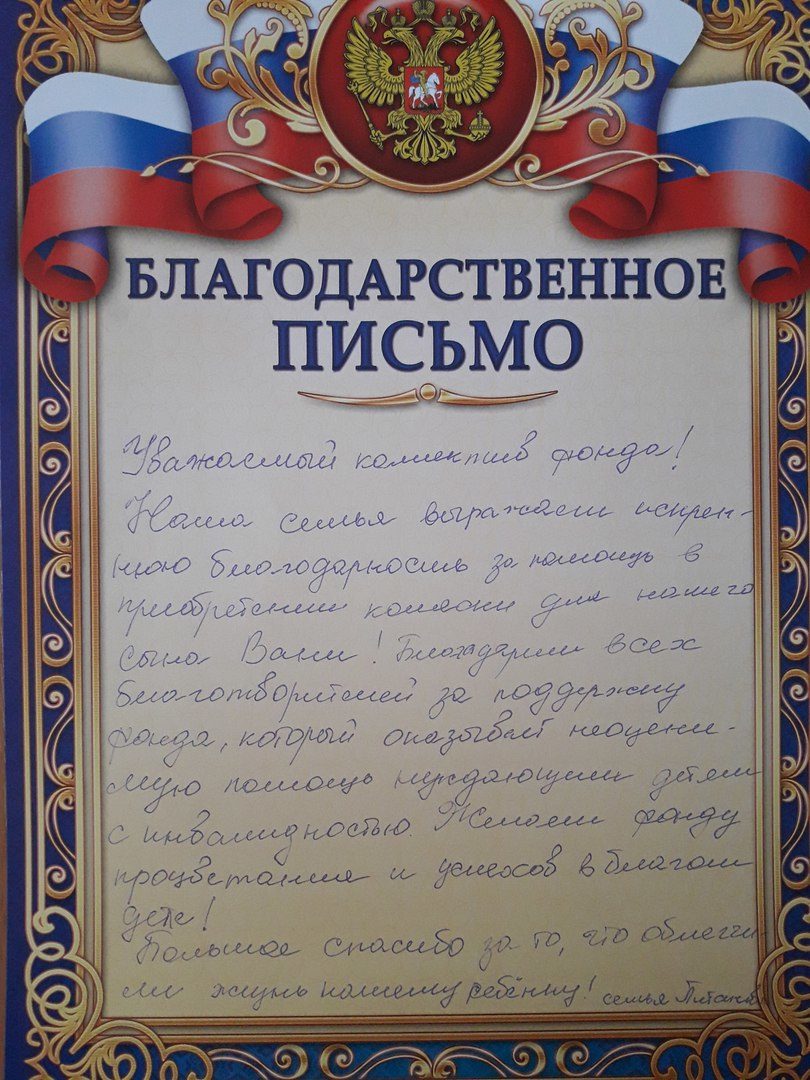 БЛАГОДАРСТВЕННОЕ
ПИСЬМО
Уважаемый коллектив фонда!
Наша семья выражает искрен-
нюю благодарность за помощь в
приобретении коляски для нашего
сына Вани! Благодарим всех
благотворителей за поддержку
фонда, который оказывает неоцени-
мую помощь нуждающим детям
с инвалидностью. Желаем фонду
процветания и успехов в благом
деле!
Большое спасибо за то, что облегчи-
ли жизнь нашему ребёнку! семья